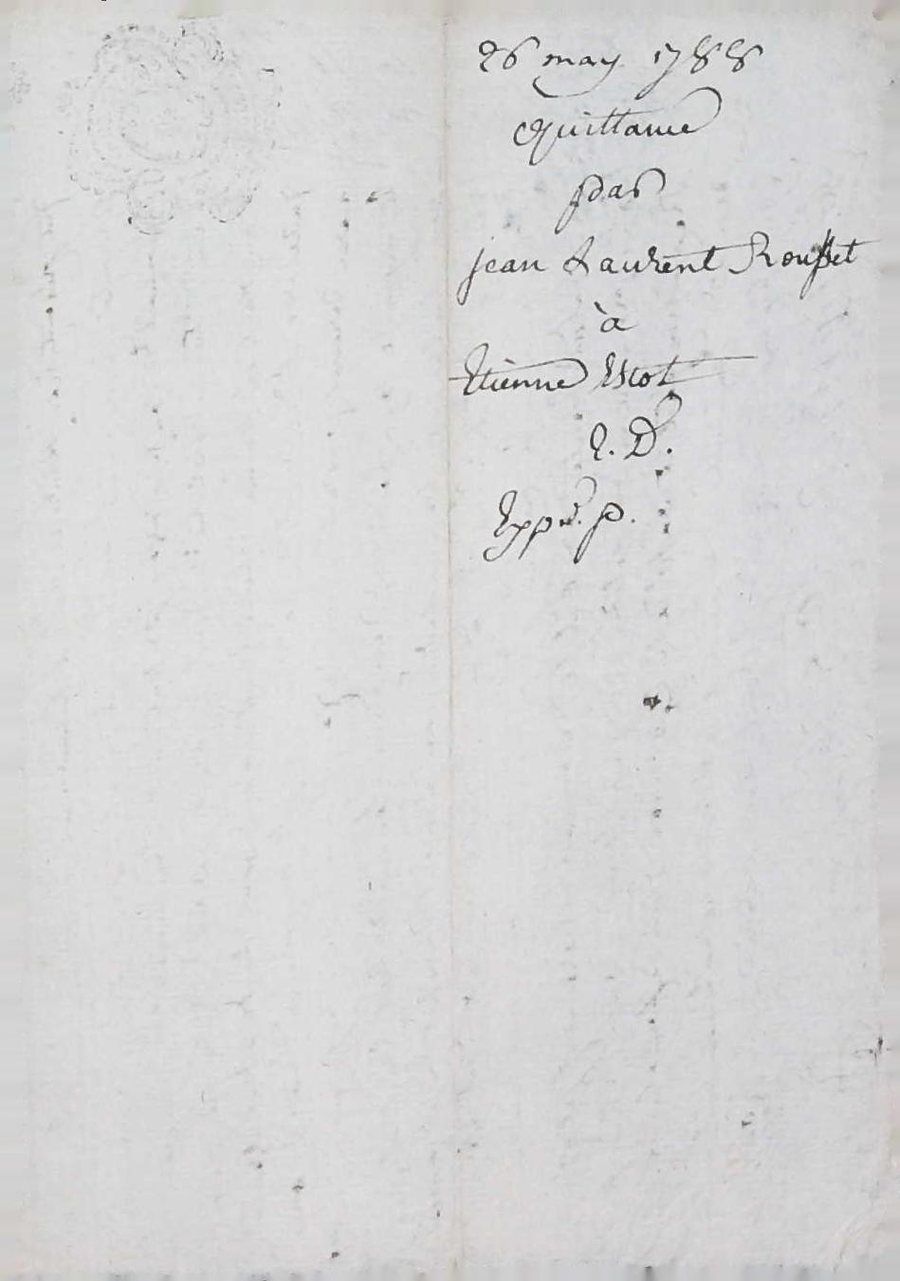 26 may 1788
Quittance
par
jean Laurent Rousset
à
Etienne Escot
E. D.
Exp.